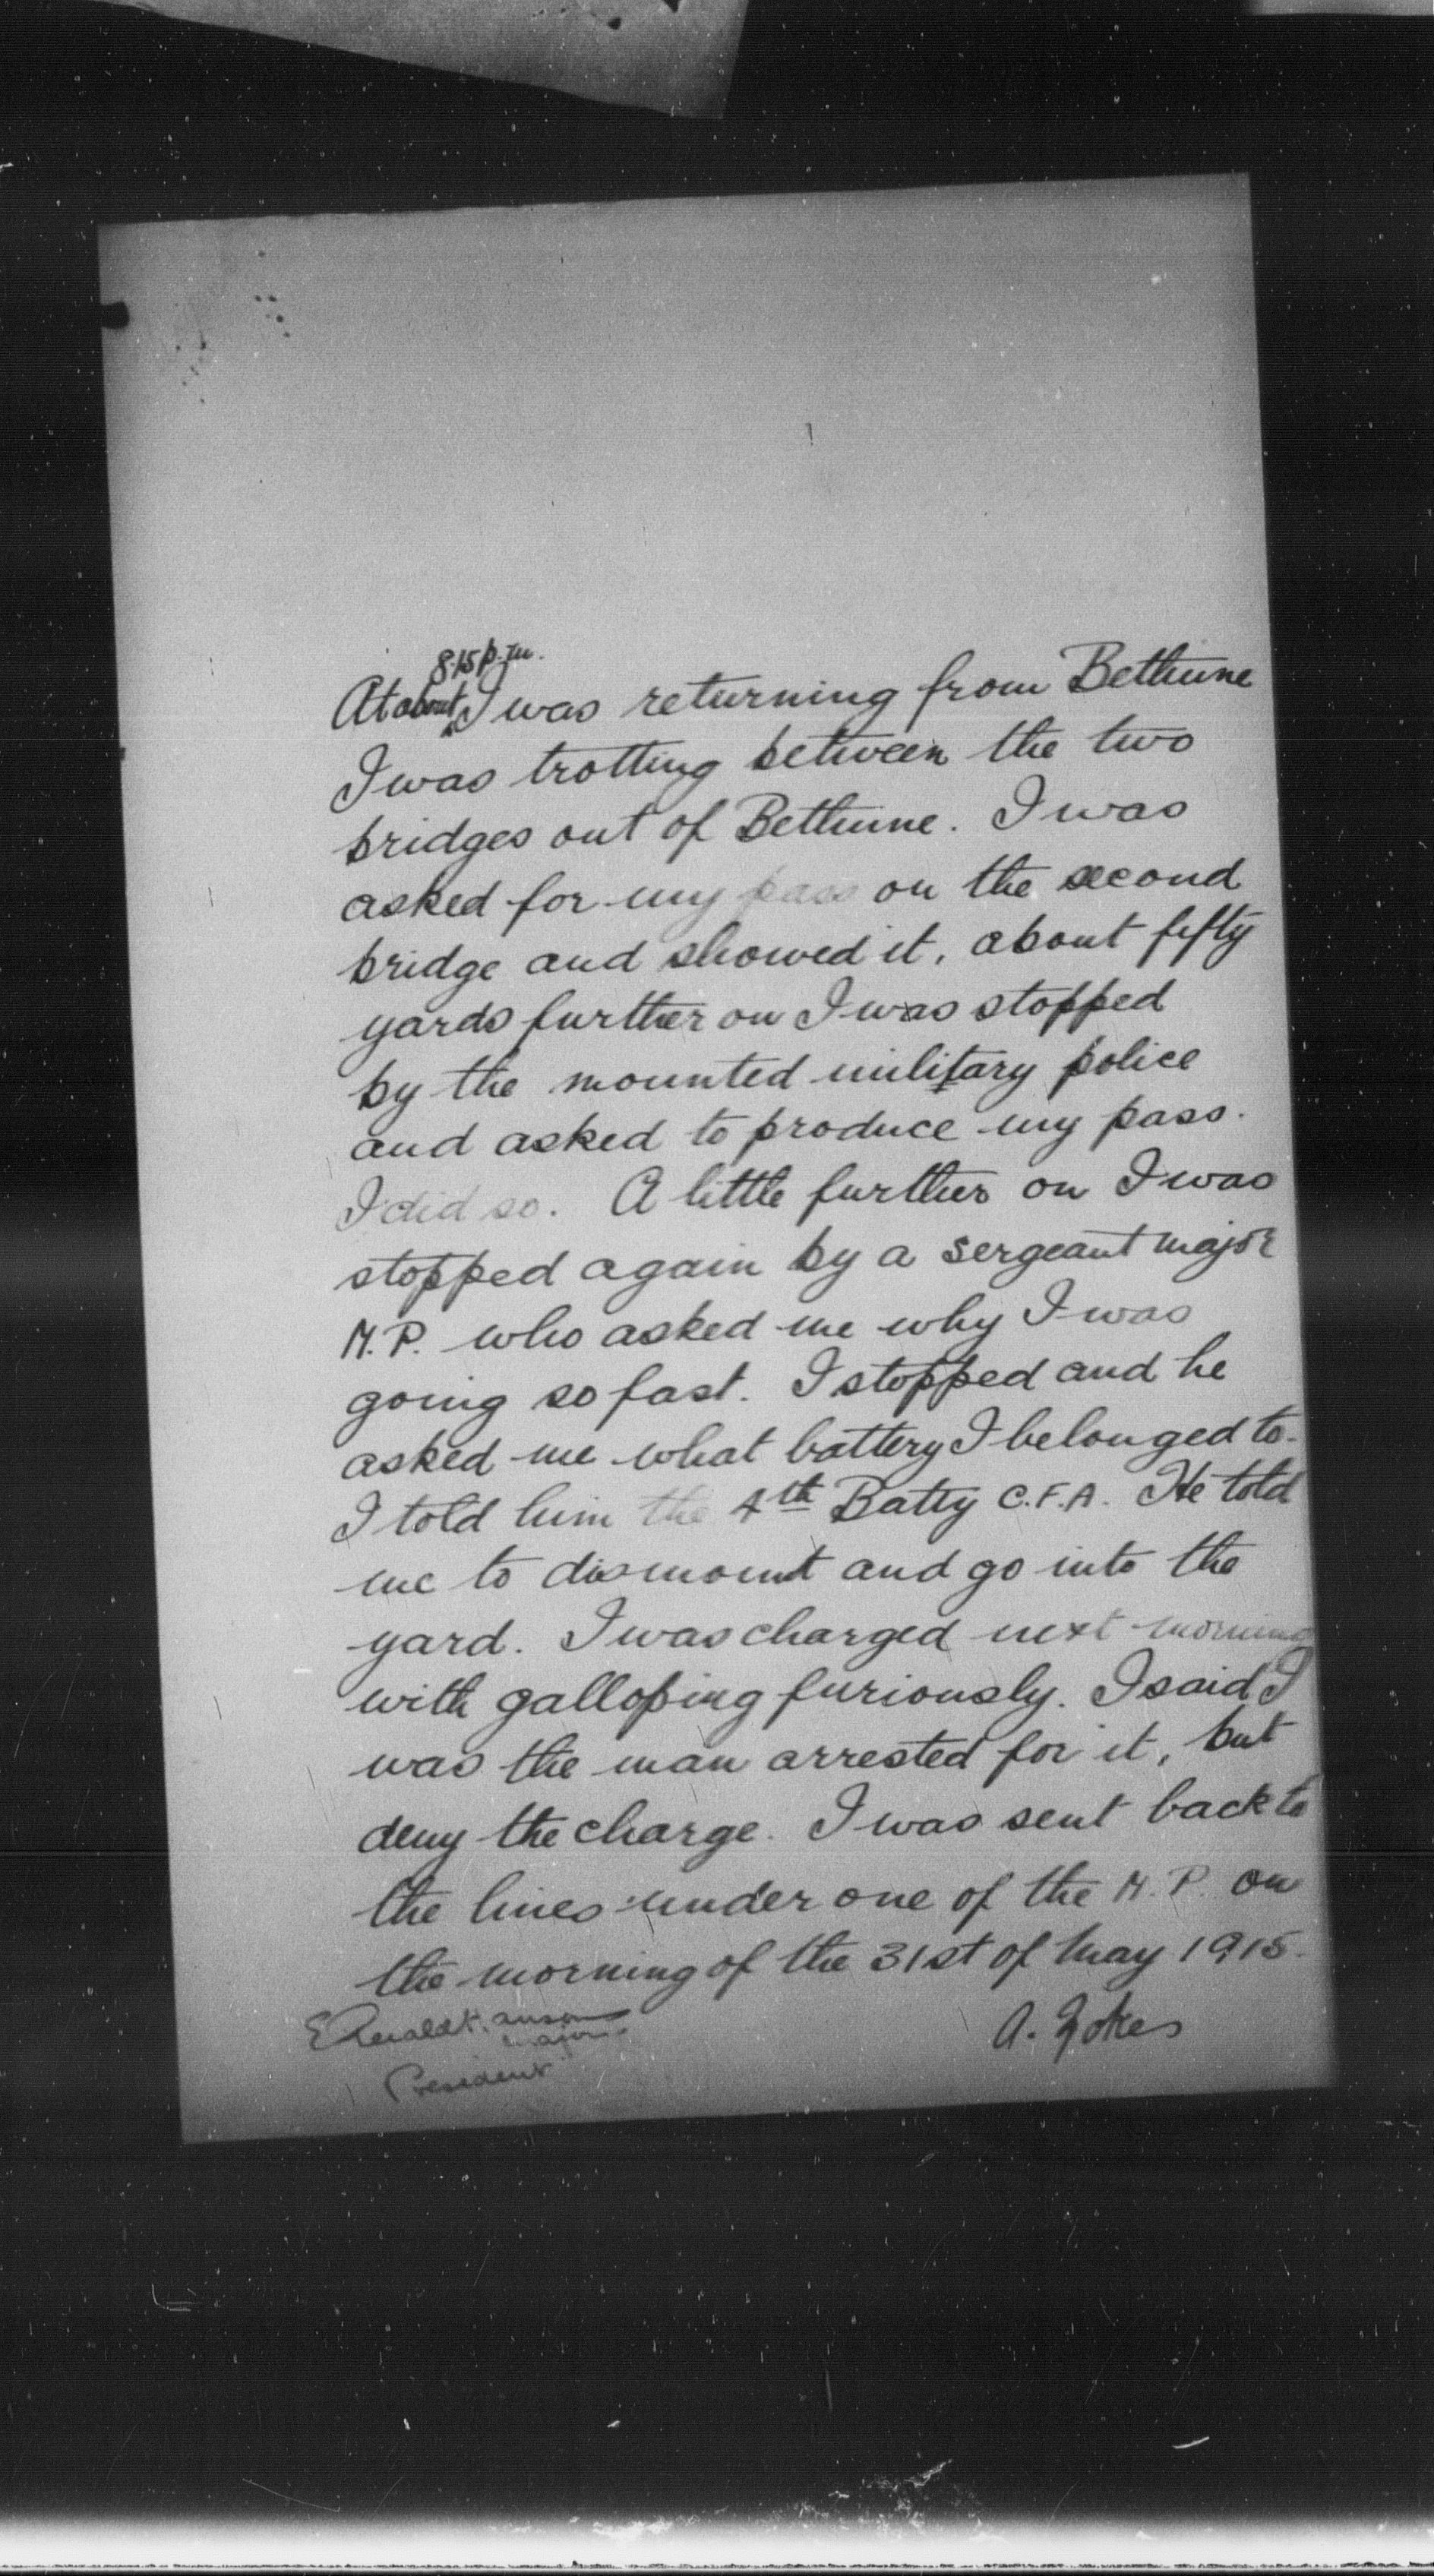 8.15 p.m.
At about I was returning from Bethune
I was trotting between the two
bridges out of Bethune. I was
asked for my pass on the second
bridge and showed it, about fifty
yards further on I was stopped
by the mounted military police
and asked to produce my pass.
I did so. A little further on I was
stopped again by a sergeant major
M.P. who asked me why I was
going so fast. I stopped and he
asked me what battery I belonged to.
I told him the 4th Batty C.F.A. He told
me to dismount and go into the
yard. I was charged next morning
with galloping furiously. I said I
was the man arrested for it, but
deny the charge. I was sent back to
the lines under one of the M.P. on
the morning of the 31st of May 1915.
A.
Major
President